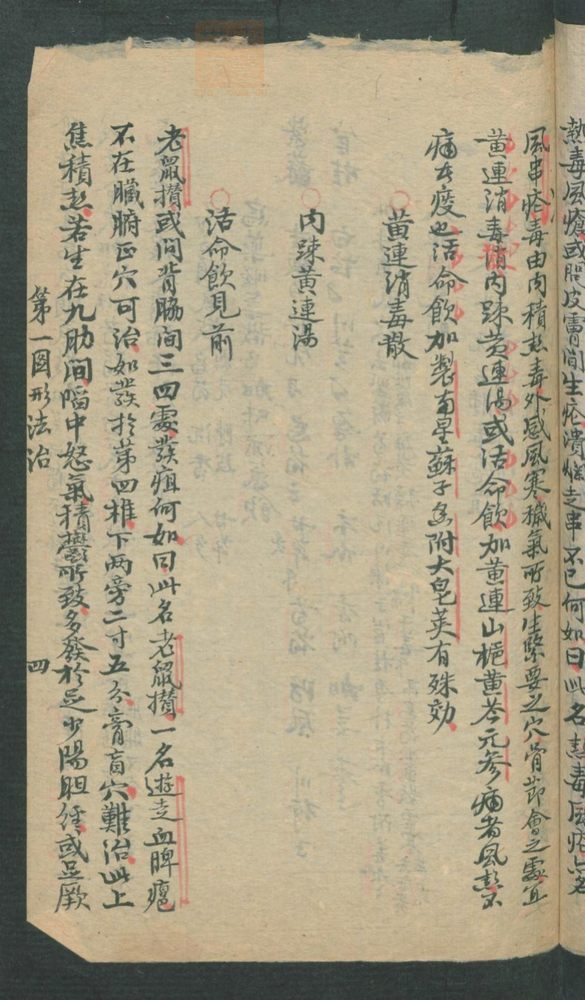 熱毒風瘡或照皮膚間生疮潰爛走串不已何如曰此名熱毒風疮一名
風串疮毒由内積熱毒外感風寒穢氣所致生緊要之穴骨節會之處宜
黄連消毒消内疎黄連湯或活命飲加黄連山梔黄芩元参痛者風熱不
痛者痰也活命飲加製南星蘇子香附大皂莢有殊効
〇黄連消毒散
〇内疎黄連湯
〇活命飲見前
老鼠攅或问背脇间三四處發疽何如曰此名老鼠攅一名遊走血脾癰
不在臟腑正穴可治如發於第四椎下両旁二寸五分膏肓穴難治此上
焦積熱若生在九肋间陷中怒氣積鬱所致多發於足少陽胆経或足厥
第一图形法治 四